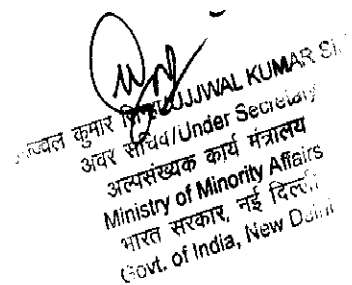 कुमार UJJWAL KUMAR
अवर सचिव/Under Secretary
अल्पसंख्यक कार्य मंत्रालय
Ministry of Minority Affairs
भारत सरकार, नई
Govt. of India, New